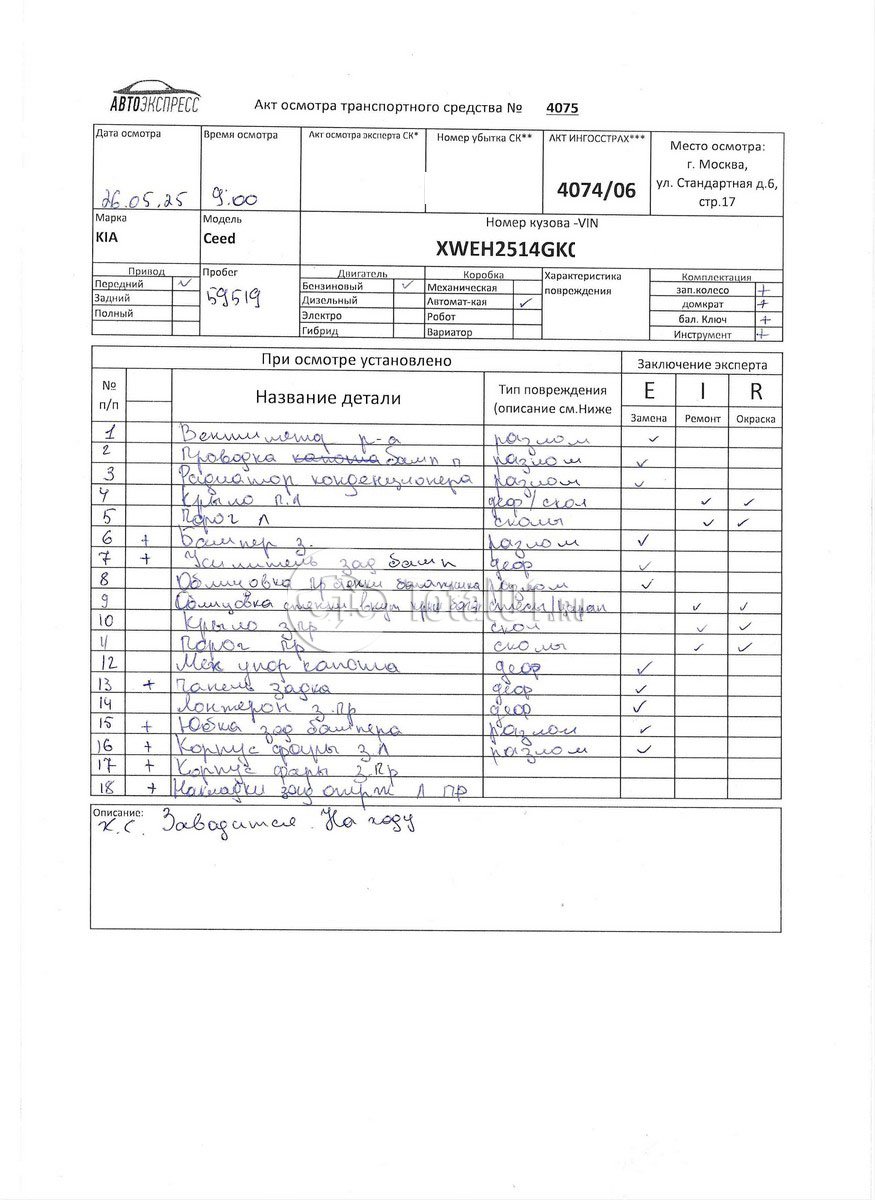 АВТОЭКСПРЕСС
Акт осмотра транспортного средства № 4075
Дата осмотра Время осмотра Акт осмотра эксперта СК* Номер убытка СК** АКТ ИНГОССТРАХ*** Место осмотра:
г. Москва,
26.05.25 9:00 4074/06 ул. Стандартная д.6,
стр.17
Марка Модель Номер кузова -VIN
KIA Ceed XWEH2514GK
Привод Пробег Двигатель Коробка Характеристика Комплектация
Передний ✓ 59519 Бензиновый ✓ Механическая повреждения зап.колесо +
Задний Дизельный Автомат-кая ✓ домкрат +
Полный Электро Робот бал. Ключ +
Гибрид Вариатор Инструмент +
При осмотре установлено Заключение эксперта
№ п/п Название детали Тип повреждения (описание см.Ниже E I R
Замена Ремонт Окраска
1 р-а разлом ✓
2 Проводка капота бамп п разлом ✓
3 Радиатор конденционера разлом ✓
4 Крыло п.л деф/скол ✓ ✓
5 Порог л сколы ✓ ✓
6 + Бампер з. разлом ✓
7 + Усилитель зад бамп деф ✓
8 Облицовка багажника разлом ✓
9 Облицовка ✓ ✓
10 Крыло з пр скол ✓ ✓
11 Порог пр сколы ✓ ✓
12 Мех упор капота деф ✓
13 + Панель задка деф ✓
14 Лонжерон з.пр деф ✓
15 + Юбка зад бампера разлом ✓
16 + Корпус фары з л разлом ✓
17 + Корпус фары з.пр
18 + Накладки зад л пр
Описание:
Х.С. Заводится. На ходу